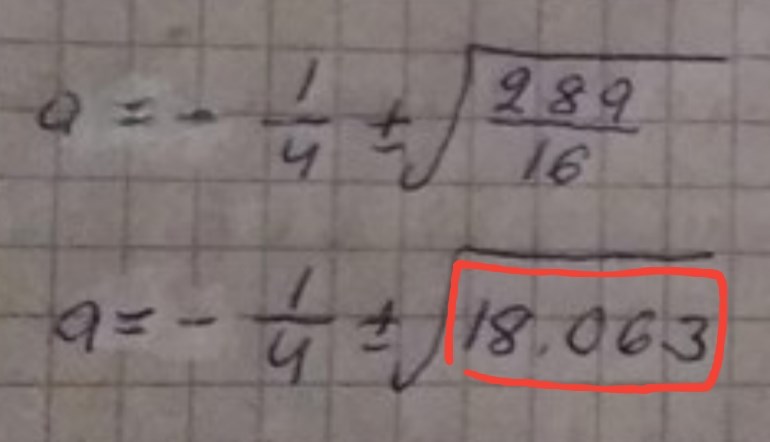 a = - 1/4 ± √(289/16)
a = - 1/4 ± √18.063